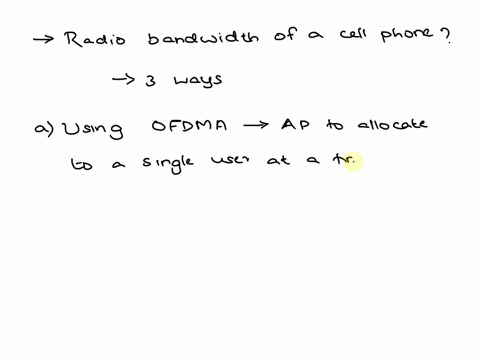 → Radio bandwidth of a cell phone?
→ 3 ways
a) Using OFDMA → AP to allocate
to a single user at a